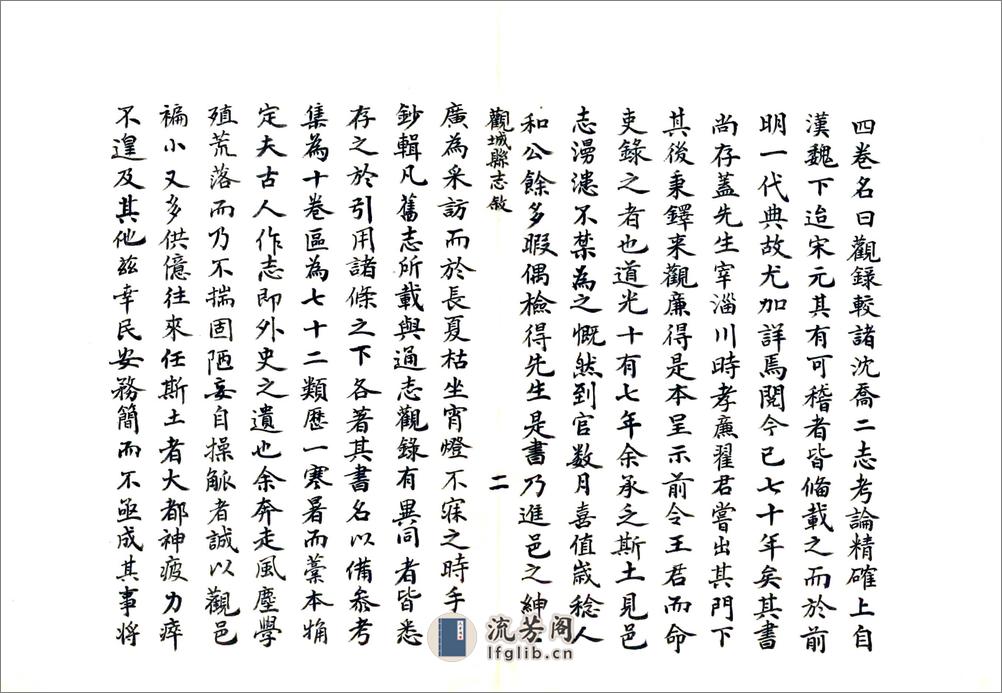 四卷名曰觀録較諸沈喬二志考論精確上自
漢魏下迨宋元其有可稽者皆偹載之而於前
明一代典故尤加詳焉閱今已七十年矣其書
尚存蓋先生宰淄川時孝廉翟君嘗出其門下
其後秉鐸来觀廉得是本呈示前令王君而命
吏錄之者也道光十有七年余承乏斯土見邑
志漫漶不禁為之慨然到官数月喜值嵗稔人
和公餘多暇偶檢得先生是書乃進邑之紳
觀城縣志敘
二
廣為采訪而於長夏枯坐宵燈不寐之時手
鈔輯凡舊志所載與通志觀錄有異同者皆悉
存之於引用諸條之下各著其書名以備叅考
集為十卷區為七十二類歴一寒暑而藁本觕
定夫古人作志即外史之遺也余奔走風塵學
殖荒落而乃不揣固陋妄自操觚者誠以觀邑
褊小又多供億往來任斯土者大都神疲力瘁
不遑及其他兹幸民安務簡而不亟成其事将
流芳阁
lfglib.cn